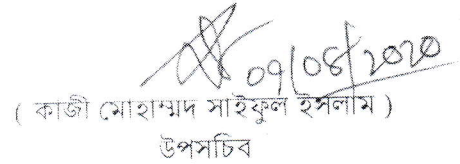 09/08/2020
( কাজী মোহাম্মদ সাইফুল ইসলাম )
উপসচিব